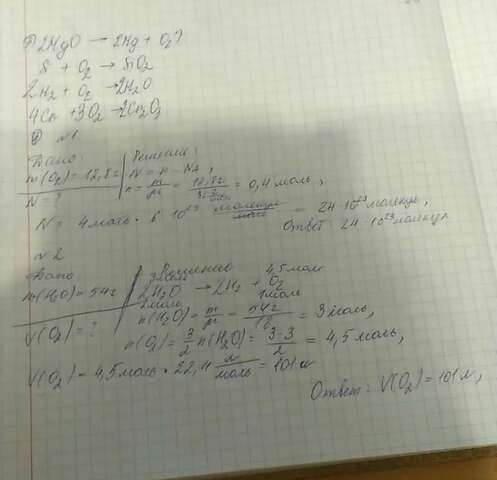 2HgO → 2Hg + O2↑
Si + O2 → SiO2
2H2 + O2 → 2H2O
4Cr + 3O2 → 2Cr2O3
№1
Дано: Решение:
m(O2) = 12,8г N = n · NA,
N = ? n = m/M = 12,8г / 32 г/моль = 0,4 моль,
N = 4 моль · 6 · 10^23 молекул/моль = 24 · 10^23 молекул,
Ответ: 24 · 10^23 молекул
№2
Дано Решение
3моль 4,5 моль
m(H2O) = 54г 2H2O → 2H2 + O2
2моль 1моль
V(O2) = ? n(H2O) = m/M = 54г/18 = 3 моль,
n(O2) = 3/2 n(H2O) = 3·3/2 = 4,5 моль,
V(O2) = 4,5 моль · 22,4 л/моль = 101 л
Ответ: V(O2) = 101 л,